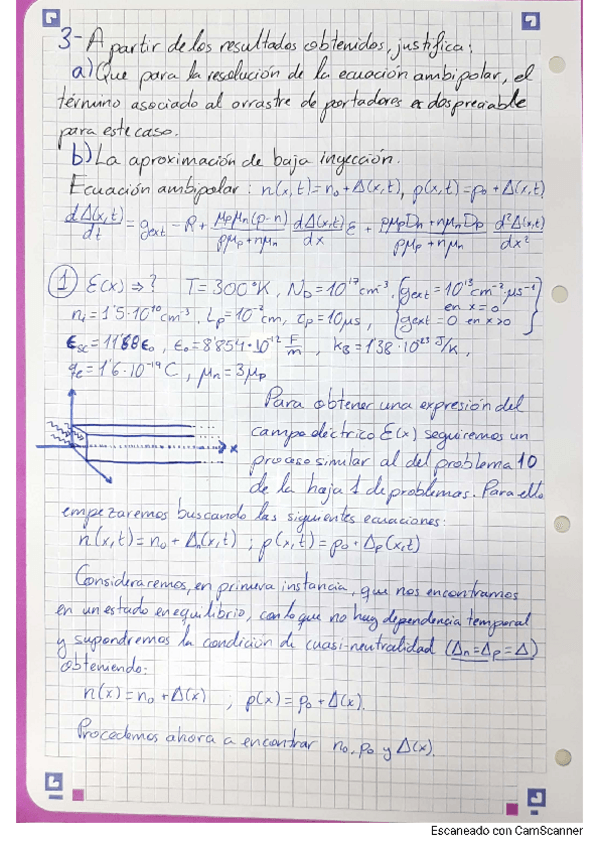 3- A partir de los resultados obtenidos, justifica:
a) Que para la resolución de la ecuación ambipolar, el
término asociado al arrastre de portadores es despreciable
para este caso.
b) La aproximación de baja inyección.
Ecuación ambipolar: n(x,t)=n₀+Δ(x,t), p(x,t)=p₀+Δ(x,t)
dΔ(x,t)/dt = gext - R + μpμn(p-n)/(pμp+nμn) dΔ(x,t)/dx ε + (pμpDn+nμnDp)/(pμp+nμn) d²Δ(x,t)/dx²
① ε(x) ⇒? T=300°K, N_D=10¹⁷cm⁻³, {gext=10¹³cm⁻²·μs⁻¹ en x=0
nᵢ=1'5·10¹⁰cm⁻³, Lp=10⁻²cm, τp=10μs, {gext=0 en x>0}
εsc=11'68ε₀, ε₀=8'854·10⁻¹² F/m, kB=1'38·10⁻²³ J/K,
qe=1'6·10⁻¹⁹C, μn=3μp
Para obtener una expresión del
campo eléctrico ε(x) seguiremos un
x
proceso similar al del problema 10
de la hoja 1 de problemas. Para ello
empezaremos buscando las siguientes ecuaciones:
n(x,t)=n₀+Δn(x,t) ; p(x,t)=p₀+Δp(x,t)
Consideraremos, en primera instancia, que nos encontramos
en un estado en equilibrio, con lo que no hay dependencia temporal
y supondremos la condición de cuasi-neutralidad (Δn=Δp=Δ)
obteniendo:
n(x)=n₀+Δ(x) ; p(x)=p₀+Δ(x).
Procedemos ahora a encontrar n₀, p₀ y Δ(x).
Escaneado con CamScanner